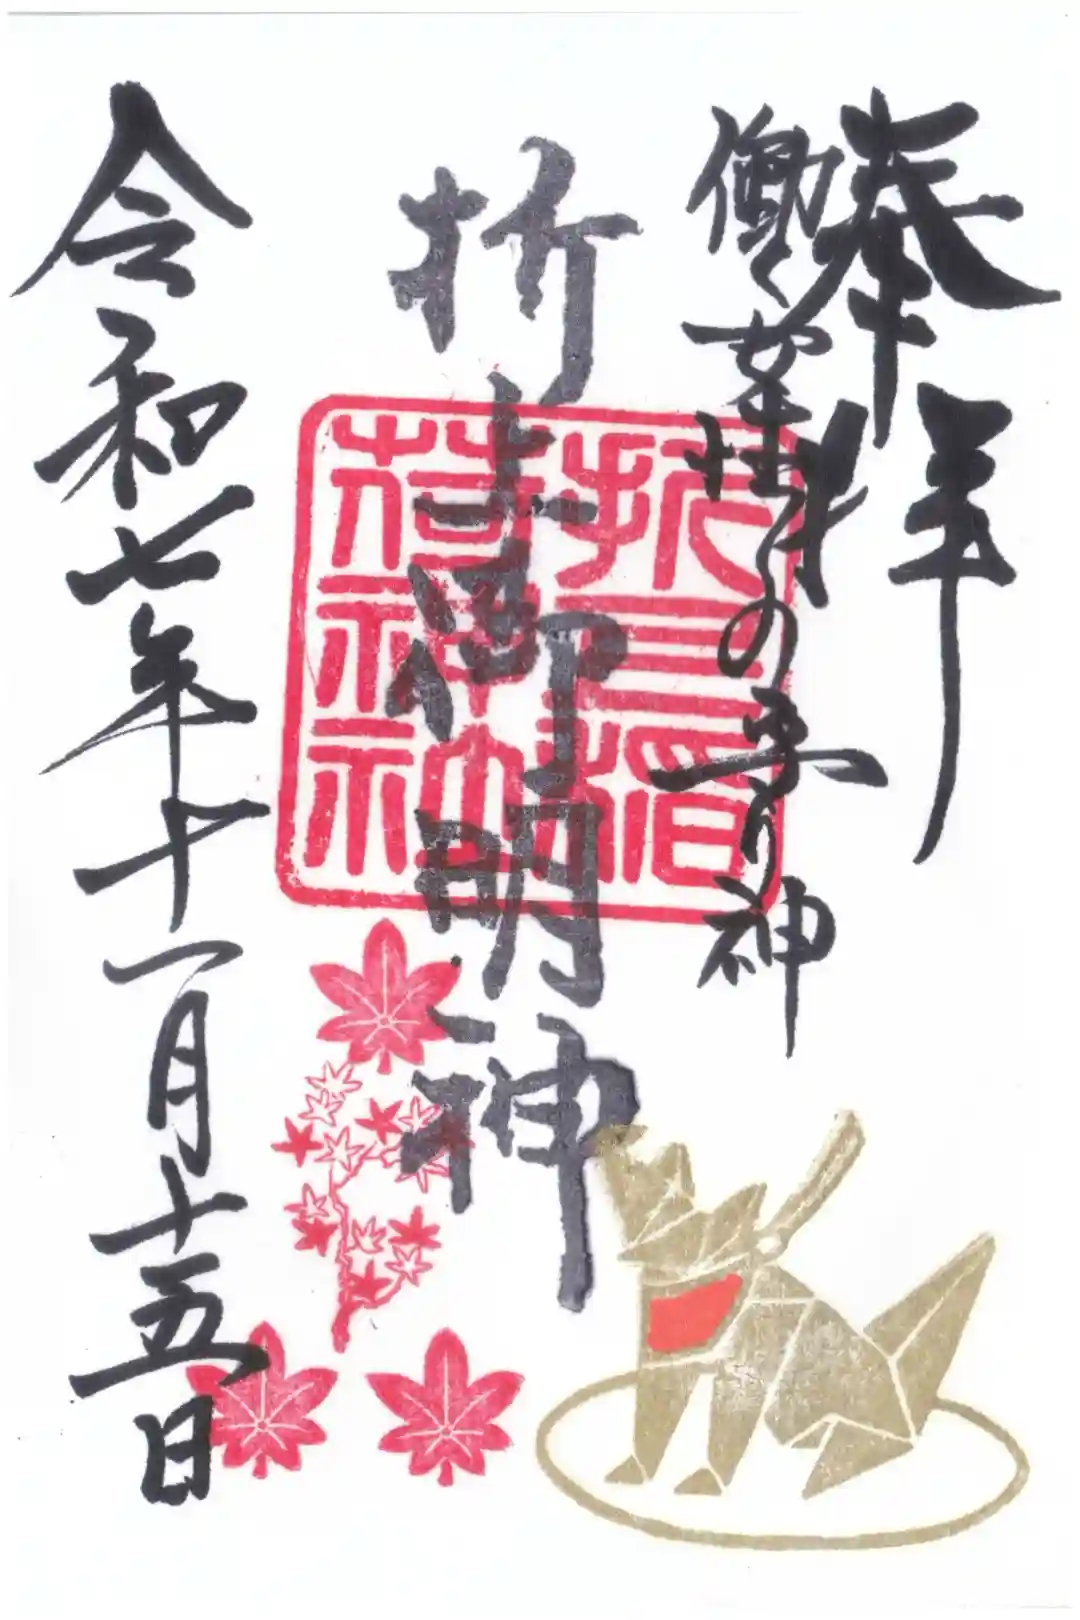 奉拝
働く女性の守り神
折上御明神
折上稲
荷神社
令和七年十一月十五日